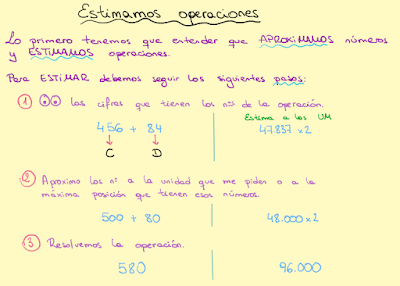 Estimamos operaciones
Lo primero tenemos que entender que APROXIMAMOS números
y ESTIMAMOS operaciones.
Para ESTIMAR debemos seguir los siguientes pasos:
1 las cifras que tienen los nos de la operación.
Estima a las UM
456 + 84
47.837 x 2
C D
2 Aproximo los nº a la unidad que me piden o a la
máxima posición que tienen esos números.
500 + 80
48.000 x 2
3 Resolvemos la operación.
580
96.000